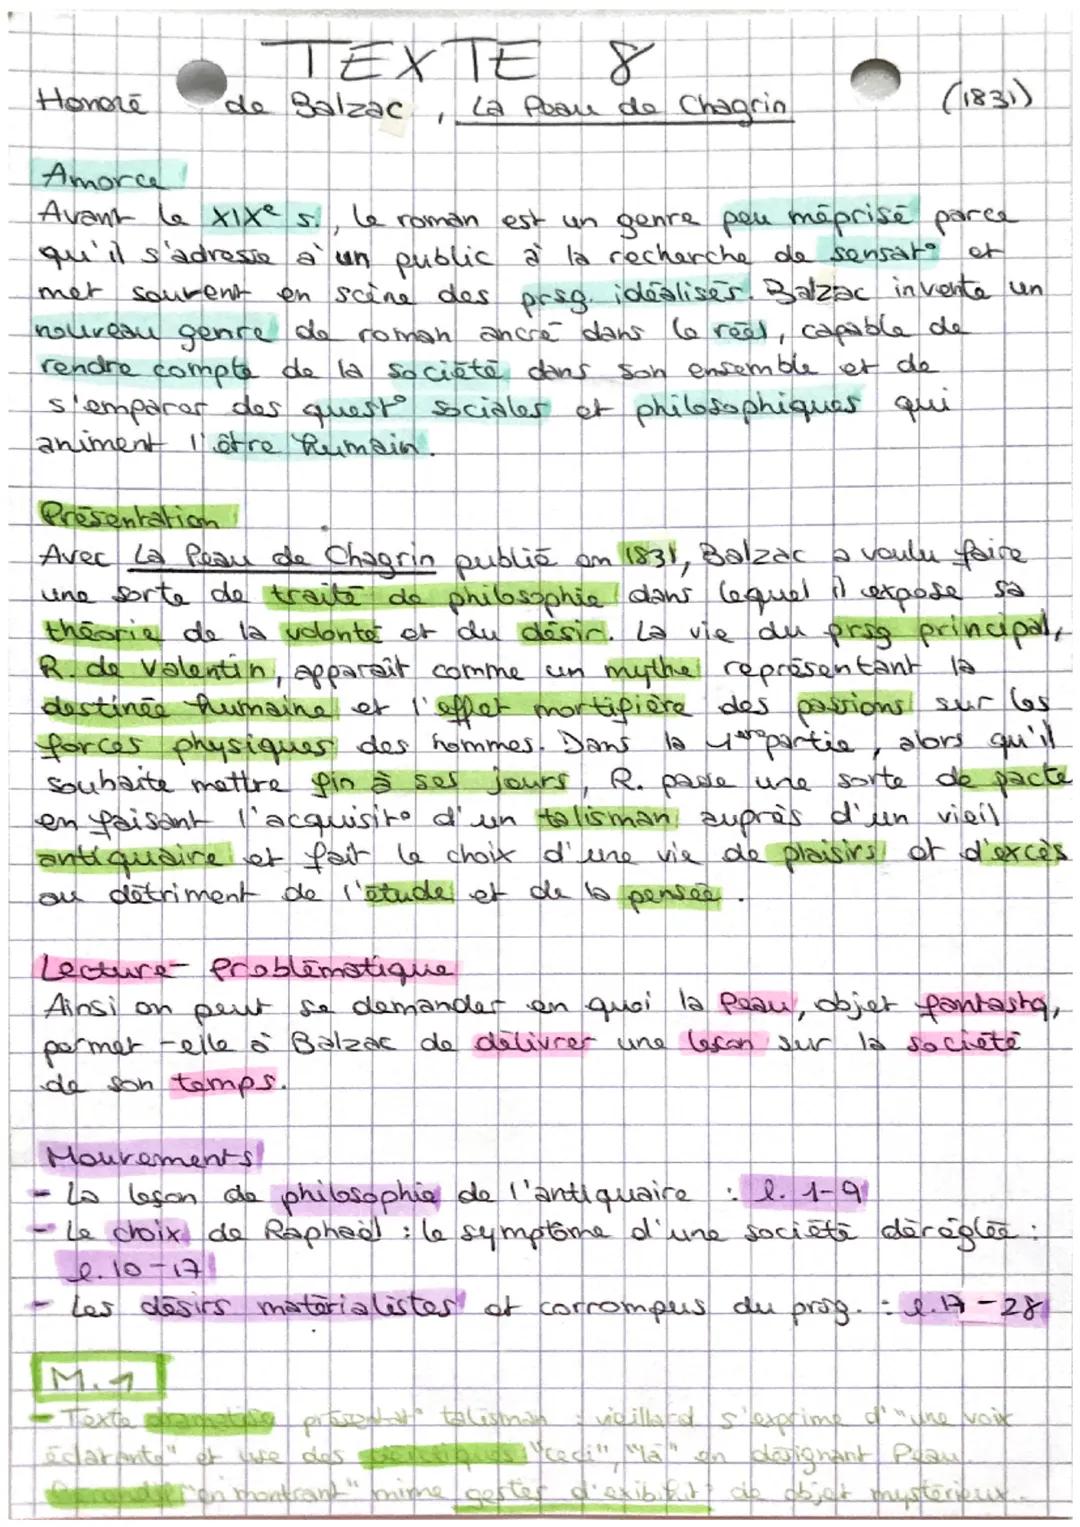 TEXTE 8
Honoré de Balzac, La Peau de Chagrin (1831)
Amorce
Avant le XIXe s., le roman est un genre peu méprisé parce
qu'il s'adresse à un public à la recherche de sensat° et
met souvent en scène des prsg. idéalisés. Balzac invente un
nouveau genre de roman ancré dans le réel, capable de
rendre compte de la société dans son ensemble et de
s'emparer des quest° sociales et philosophiques qui
animent l'être humain.
Présentation
Avec La Peau de Chagrin publié en 1831, Balzac a voulu faire
une sorte de traité de philosophie dans lequel il expose sa
théorie de la volonté et du désir. La vie du prsg principal,
R. de Valentin, apparaît comme un mythe représentant la
destinée humaine et l'effet mortifière des passions sur les
forces physiques des hommes. Dans la 1ère partie, alors qu'il
souhaite mettre fin à ses jours, R. passe une sorte de pacte
en faisant l'acquisit° d'un talisman auprès d'un vieil
antiquaire et fait le choix d'une vie de plaisirs et d'excès
au détriment de l'étude et de la pensée.
Lecture - Problématique
Ainsi on peut se demander en quoi la Peau, objet fantastq,
permet-elle à Balzac de délivrer une leçon sur la société
de son temps.
Mouvements
- La leçon de philosophie de l'antiquaire : l. 1-9
- Le choix de Raphaël : le symptôme d'une société déréglée :
l. 10-17
- Les désirs matérialistes et corrompus du prsg. : l. 17-28
M.1
- Texte dramatise présentat° talisman : vieillard s'exprime d'"une voix
éclatante" et use des "ceci", "là" en désignant Peau.
"en montrant" mime gestes d'exibit° de objet mystérieux.